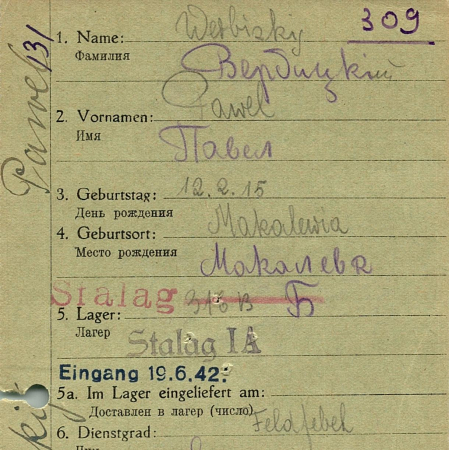 309
131
Pawel
1. Name: Werbizky
Фамилия Вербицкий
2. Vornamen: Pawel
Имя Павел
3. Geburtstag: 12.2.15
День рождения
4. Geburtsort: Makalewia
Место рождения Макалевка
Stalag 316 B Б
5. Lager:
Лагер Stalag IA
Eingang 19.6.42.
5a. Im Lager eingeliefert am:
Доставлен в лагер (число)
6. Dienstgrad: Feldfebel